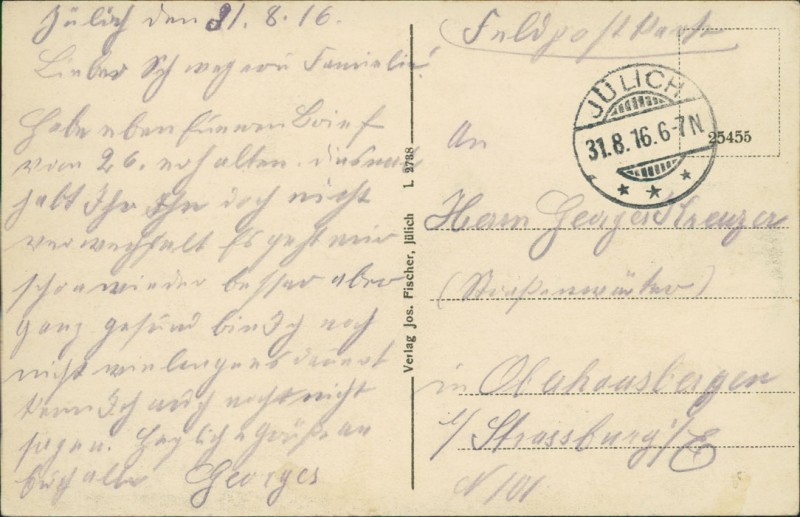 Jülich den 31.8.16.
Lieber Schwager u Familie!
Habe eben Euren Brief
vom 26. erhalten. diesmal
habt Ihr Ihn doch nicht
verwechselt Es geht mir
schon wieder besser aber
ganz gesund bin Ich noch
nicht wie lang es dauert
kann Ich auch noch nicht
sagen. Herzliche Grüße an
Euch alle Georges
Verlag Jos. Fischer, Jülich L 2788
Feldpostkarte
JÜLICH
31.8.16.6-7N
25455
An
Herrn Georges Kreuzer
(Straßenwärter)
in Oberhausbergen
b/ Strassburg i/E
N 101